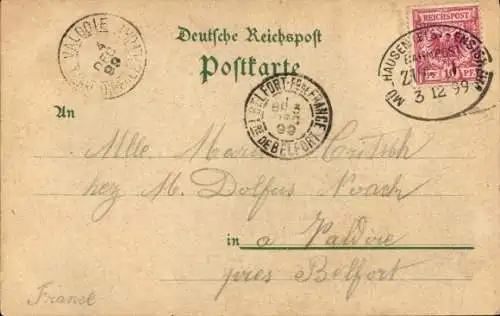 VALDOIE
4
DEC
99
Deutsche Reichspost
Postkarte
REICHSPOST
10 PF
MÜHAUSEN
BAHNPOST
ZUG
3 12 99
BELFORT
FRANCE
99
DE BELFORT
An
Mlle Marie
chez M. Dolfus Noach
in a Valdoie
près Belfort
France